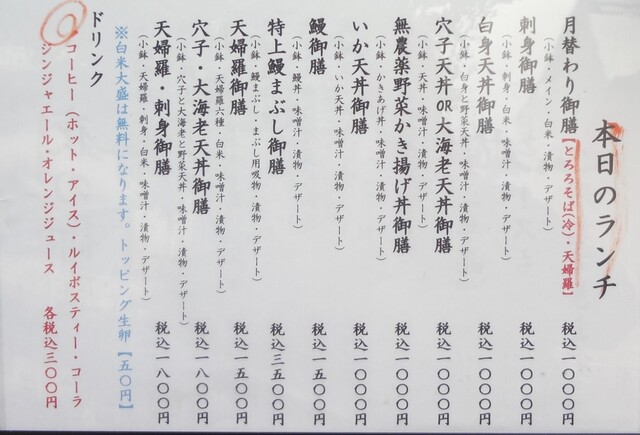 本日のランチ
月替わり御膳【とろろそば(冷)・天婦羅】 税込一〇〇〇円
(小鉢・メイン・白米・漬物・デザート)
刺身御膳 税込一〇〇〇円
(小鉢・刺身・白米・味噌汁・漬物・デザート)
白身天丼御膳 税込一〇〇〇円
(小鉢・白身と野菜天丼・味噌汁・漬物・デザート)
穴子天丼OR大海老天丼御膳 税込一〇〇〇円
(小鉢・天丼・味噌汁・漬物・デザート)
無農薬野菜かき揚げ丼御膳 税込一〇〇〇円
(小鉢・かきあげ丼・味噌汁・漬物・デザート)
いか天丼御膳 税込一〇〇〇円
(小鉢・いか天丼・味噌汁・漬物・デザート)
鰻御膳 税込一五〇〇円
(小鉢・鰻丼・味噌汁・漬物・デザート)
特上鰻まぶし御膳 税込三五〇〇円
(小鉢・鰻まぶし・まぶし用吸物・漬物・デザート)
天婦羅御膳 税込一五〇〇円
(小鉢・天婦羅六種・白米・味噌汁・漬物・デザート)
穴子・大海老天丼御膳 税込一八〇〇円
(小鉢・穴子と大海老と野菜天丼・味噌汁・漬物・デザート)
天婦羅・刺身御膳 税込一八〇〇円
(小鉢・天婦羅・刺身・白米・味噌汁・漬物・デザート)
※白米大盛は無料になります。トッピング生卵【五〇円】
ドリンク
コーヒー(ホット・アイス)・ルイボスティー・コーラ
ジンジャエール・オレンジジュース 各税込三〇〇円